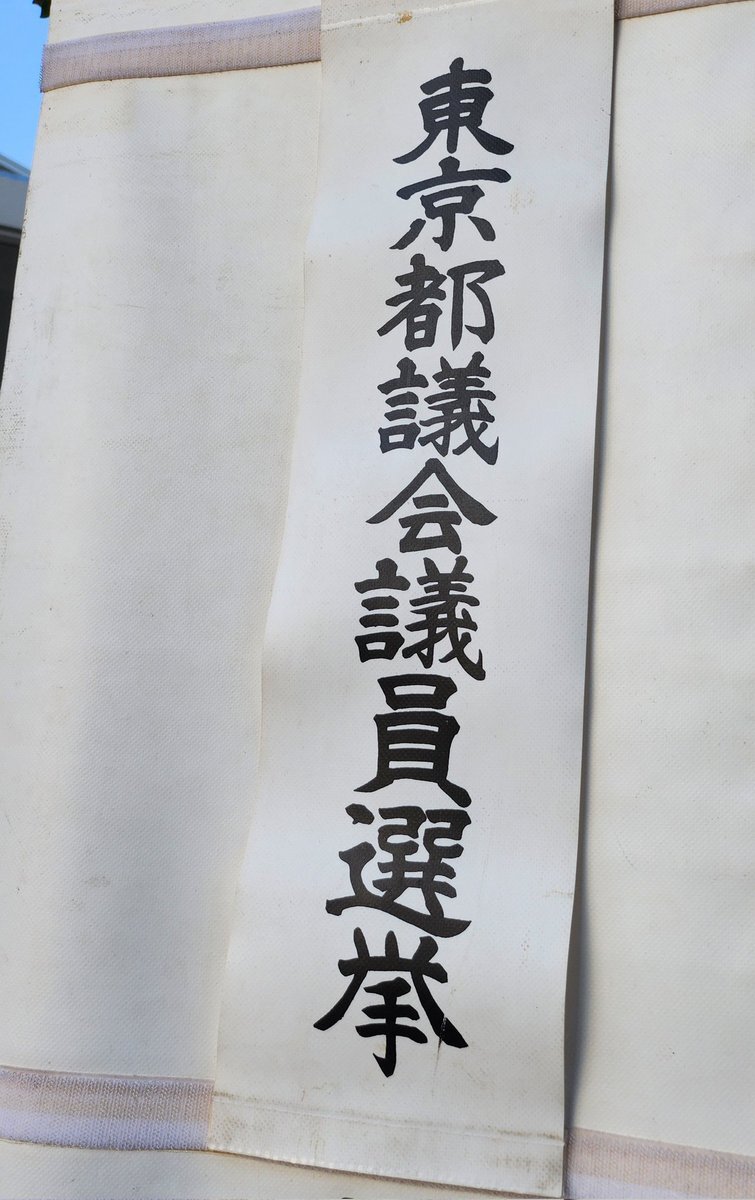 東京都議会議員選挙